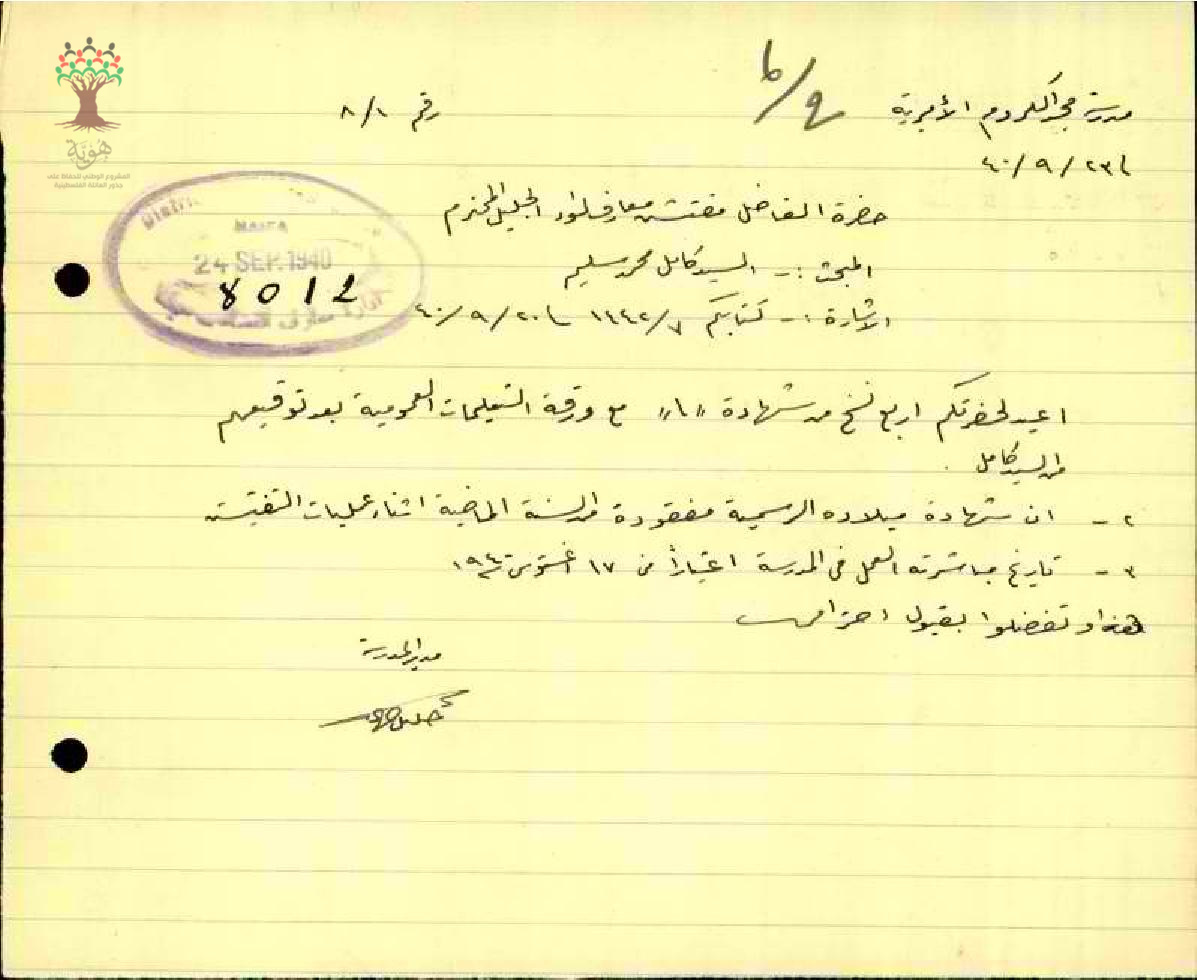 هوية
المشروع الوطني للحفاظ على
جذور العائلة الفلسطينية
مدرسة مجد الكروم الأميرية
رقم ٨/١
٢٣/٩/٤٠
حضرة الفاضل مفتش معارف لواء الجليل المحترم
المبحث :- السيد كامل محمد سليم
الاشارة :- كتابكم ١٤٤٢/٧ ٢٠/٩/٤٠
HAIFA
24 SEP. 1940
8012
اعيد لحضرتكم اربع نسخ من شهادة "١" مع ورقة التعليمات العمومية بعد توقيعهم
من السيد كامل .
٢ - ان شهادة ميلاده الرسمية مفقودة من السنة الماضية اثناء عمليات التفتيش
٣ - تاريخ مباشرته العمل في المدرسة اعتباراً من ١٧ اغسطوس ١٩٤٠
هذا وتفضلوا بقبول احترامي
مدير المدرسة